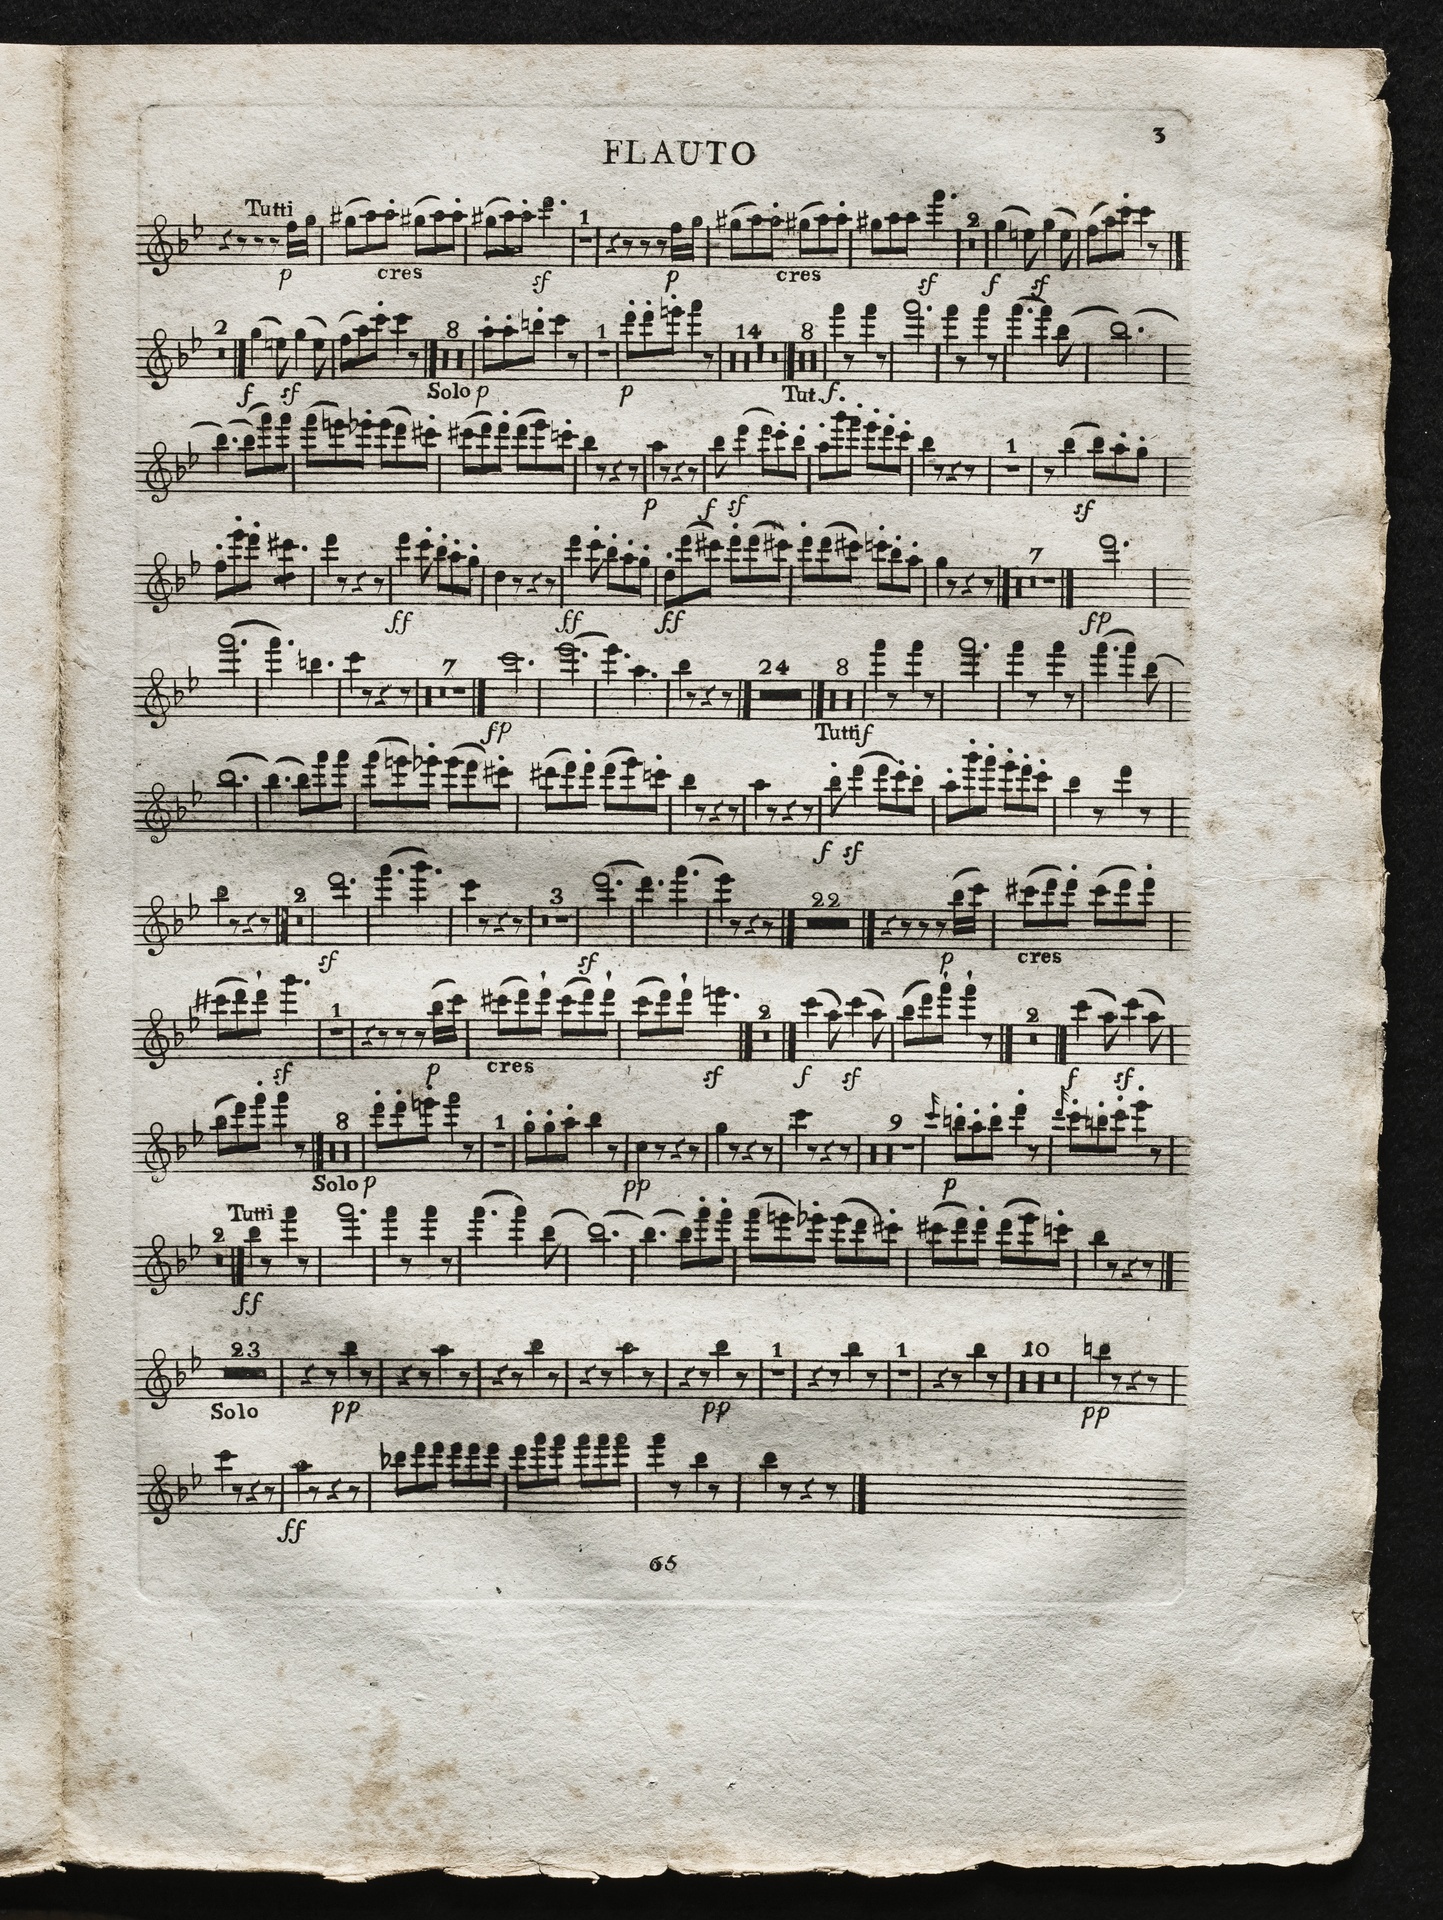 3
FLAUTO
Tutti 1 2
p cres sf p cres sf f sf
2 8 1 14 8
f sf Solo p p Tut. f.
1
p f sf sf
7
ff ff ff fp
7 24 8
fp Tutti f
f sf
2 3 22
sf sf p cres
1 2 2
sf p cres sf f sf f sf
8 1 9
Solo p pp p
2 Tutti
ff
23 1 1 10
Solo pp pp pp
ff
65